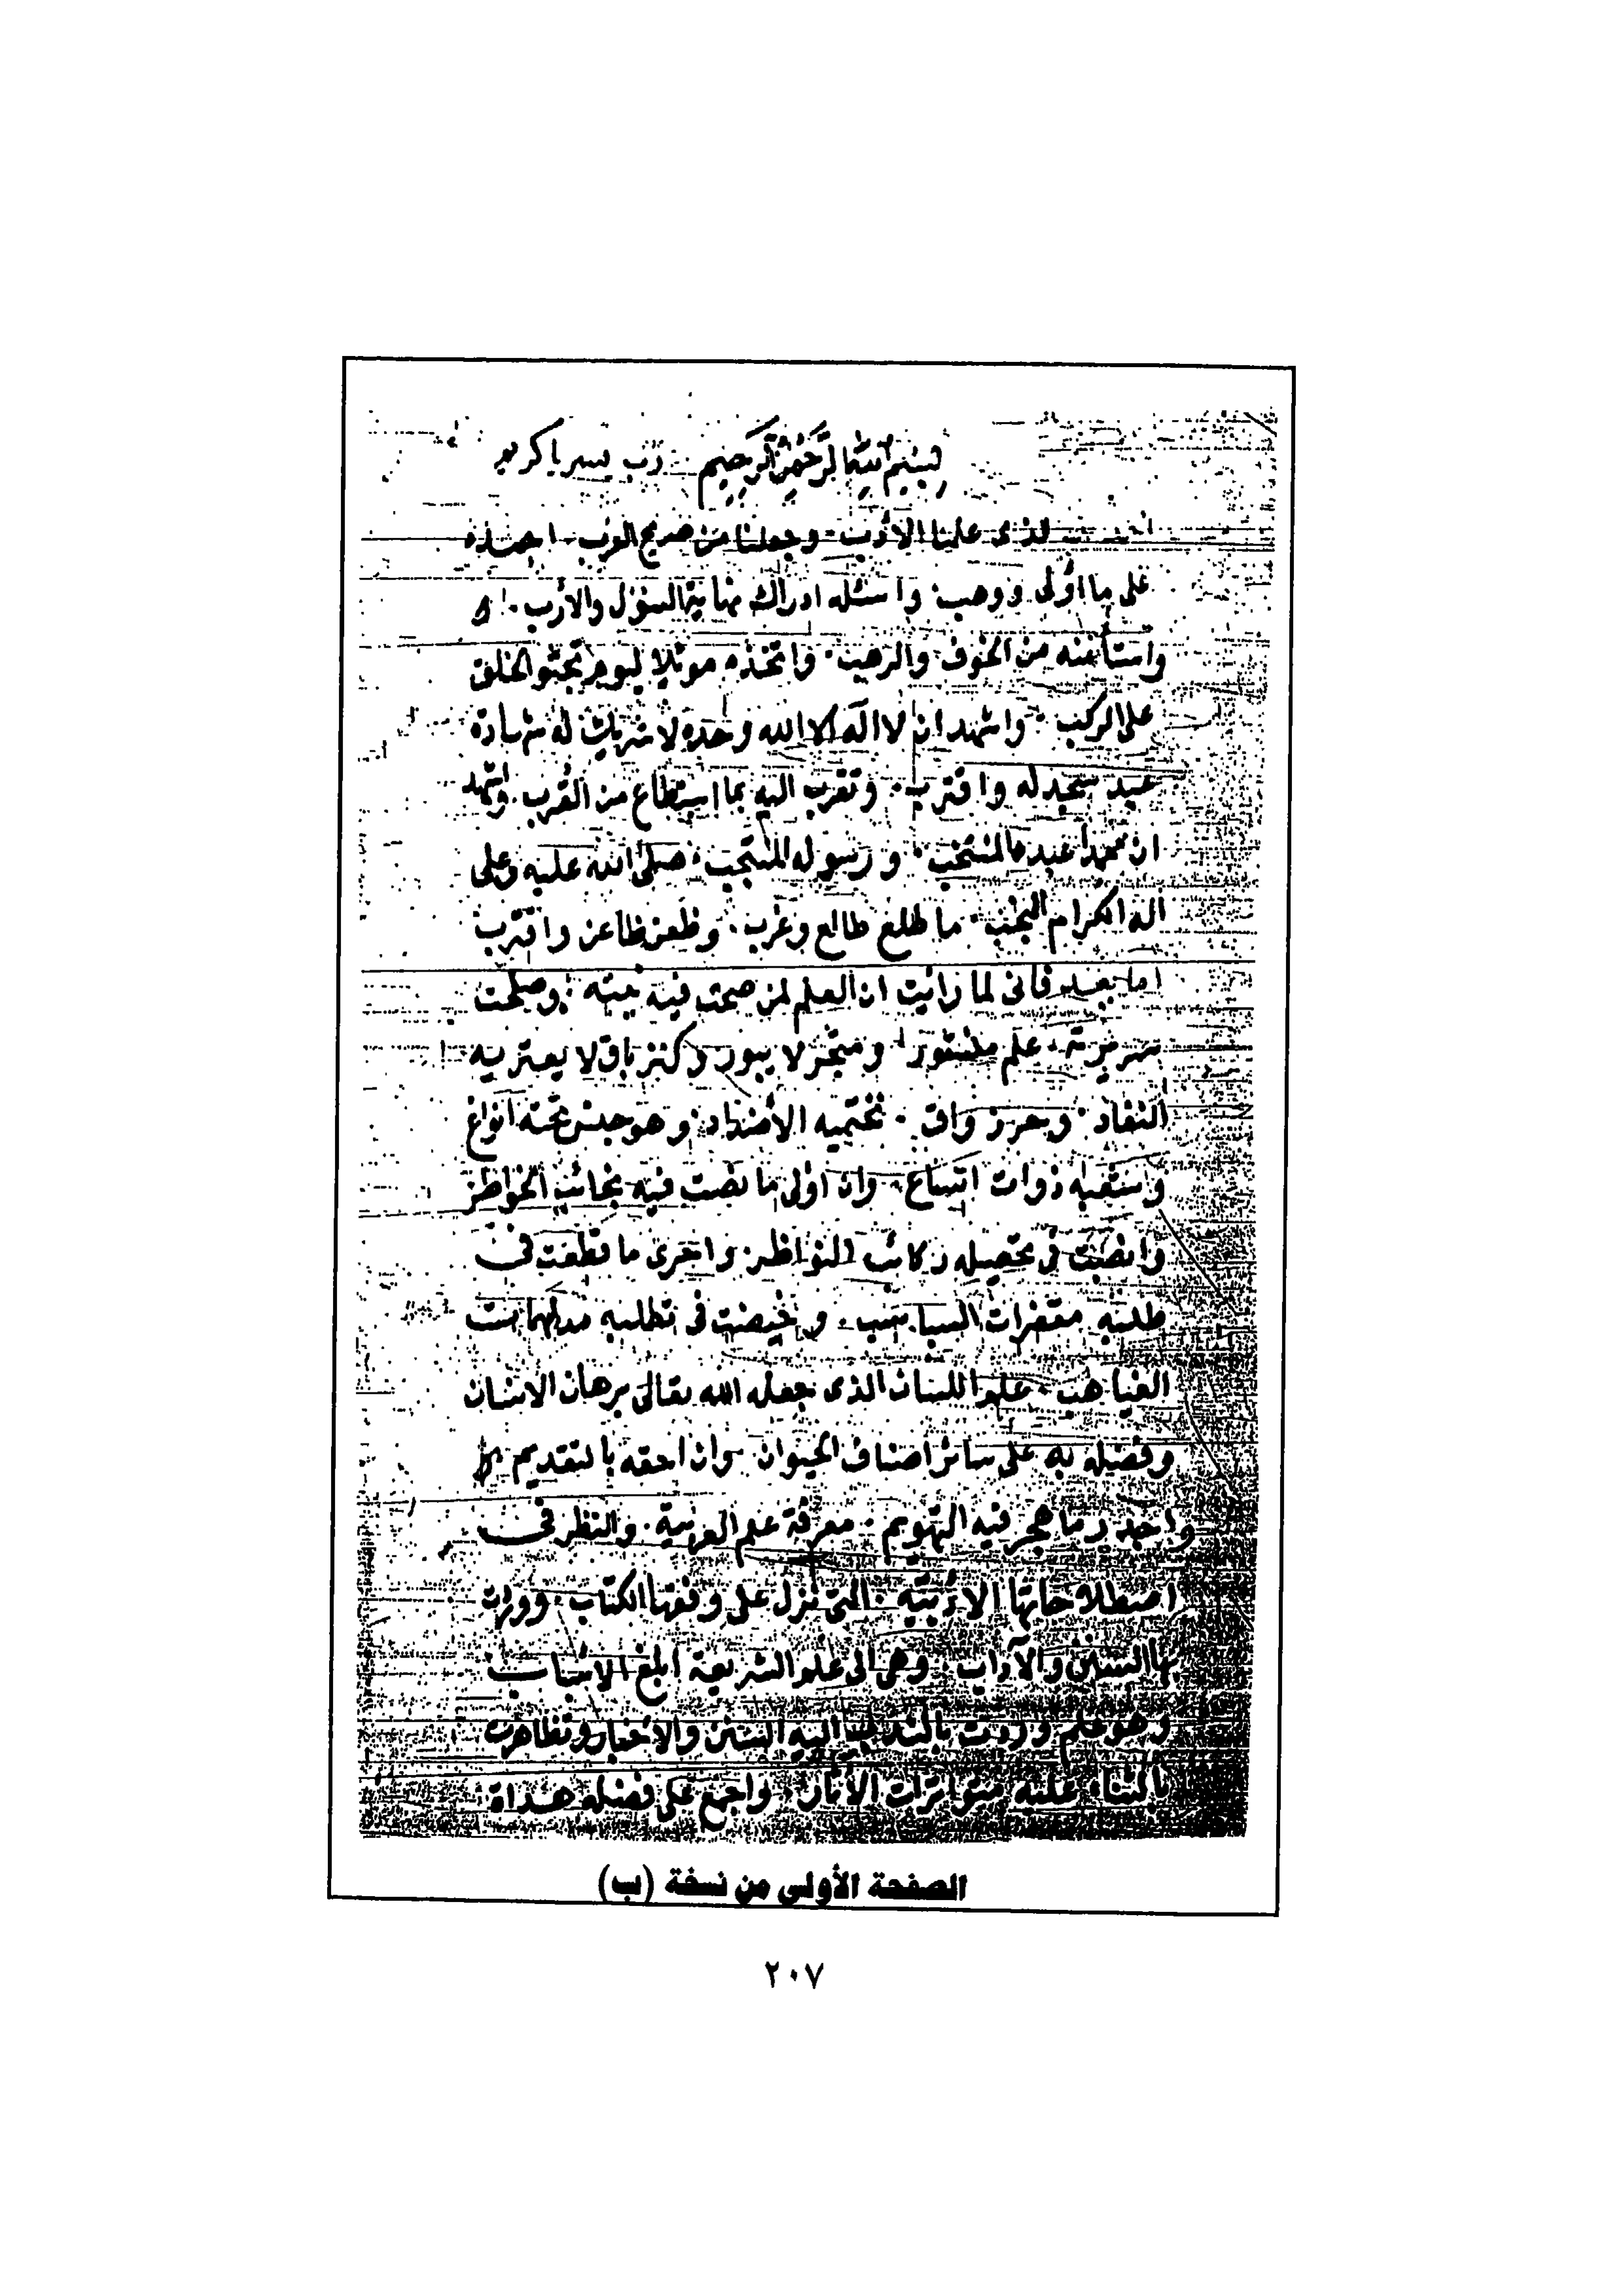 بسم الله الرحمن الرحيم رب يسر يا كريم
لذى علمنا الأدب وجعلنا من صريح العرب احمده
على ما اولى ووهب واسئله ادراك نهاية السؤل والأرب
واستأمنه من الخوف والرهب واتخذه موئلا ليوم تجثو الخلق
على الركب واشهد ان لا اله الا الله وحده لا شريك له شهادة
عبد سجد له واقترب وتقرب اليه بما استطاع من القرب واشهد
ان محمدا عبده المنتخب ورسوله المنتجب صلى الله عليه وعلى
اله الكرام النجب ما طلع طالع وغرب وظعن ظاعن واقترب
اما بعد فانى لما رأيت ان العلم لمن صحت فيه نيته وصلحت
سريرته علم منشور ومتجر لا يبور وكنز باق لا يعتريه
النفاد وحرز واق تحتميه الأضداد وهو جنس تحته انواع
وشعبه ذوات اتساع وان اولى ما نضت فيه نجائب الخواطر
وانضيت فى تحصيله ركائب النواظر واحرى ما قطعت فى
طلبه مقفرات السباسب وخيضت فى تطلبه مدلهمات
الغياهب علم اللسان الذى جعله الله تعالى برهان الانسان
وفضيله به على سائر اصناف الحيوان وان احقه بالتقديم
واجدر ما هجر فيه التهويم معرفة علم العربية والنظر فى
اصطلاحاتها الأدبيه التى نزل على وفقها الكتاب ووردت
بها السنن والآداب وهى الى علم الشريعة ابلغ الأسباب
وهو علم وردت بالندب اليه السنن والأخبار وتظاهرت
بالثناء عليه متواترات الأثار واجمع على فضله هداة
الصفحة الأولى من نسخة (ب)
٢٠٧